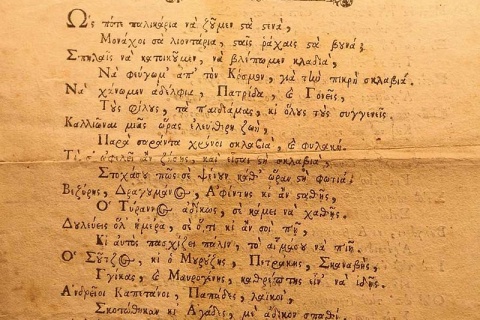 Ὡς πότε παλικάρια νὰ ζοῦμεν στὰ στενά,
Μονάχοι σὰ λιοντάρια, σταῖς ράχαις στὰ βουνά;
Σπηλιαῖς νὰ κατοικοῦμεν, νὰ βλέπωμεν κλαδιά,
Νὰ φεύγωμ' ἀπ' τὸν Κόσμον, γιὰ τὴν πικρὴ σκλαβιά.
Νὰ χάνωμεν ἀδέλφια, Πατρίδα, καὶ Γονεῖς,
Τοὺς φίλους, τὰ παιδιάμας, κι ὅλους τοὺς συγγενεῖς.
Καλλιῶναι μιᾶς ὥρας ἐλεύθερη ζωή,
Παρὰ σαράντα χρόνοι σκλαβιά, καὶ φυλακή.
Τί σ' ὠφελεῖ ἂν ζήσῃς, καὶ εἶσαι στὴ σκλαβιά,
Στοχάσου πῶς σὲ ψένουν καθ' ὥραν στὴ φωτιά.
Βεζύρης, Δραγουμάνος, Ἀφέντης κι ἂν σταθῇς,
Ὁ Τύραννος ἀδίκως, σὲ κάμει νὰ χαθῇς.
Δουλεύεις ὅλ' ἡμέρα, σὲ ὅ,τι κι ἂν σοὶ πῇ,
Κι αὐτὸς πασχίζει πάλιν, τὸ αἷμασου νὰ πιῇ.
Ὁ Σοῦτζος, κι ὁ Μουρούζης, Πετράκης, Σκαναβῆς,
Γγίκας, καὶ Μαυρογένης, καθρέπτης εἶν' νὰ ἰδῇς.
Ἀνδρεῖοι Καπετάνοι, Παπάδες, λαϊκοί,
Σκοτώθηκαν κι Ἀγάδες, μὲ ἄδικον σπαθί.